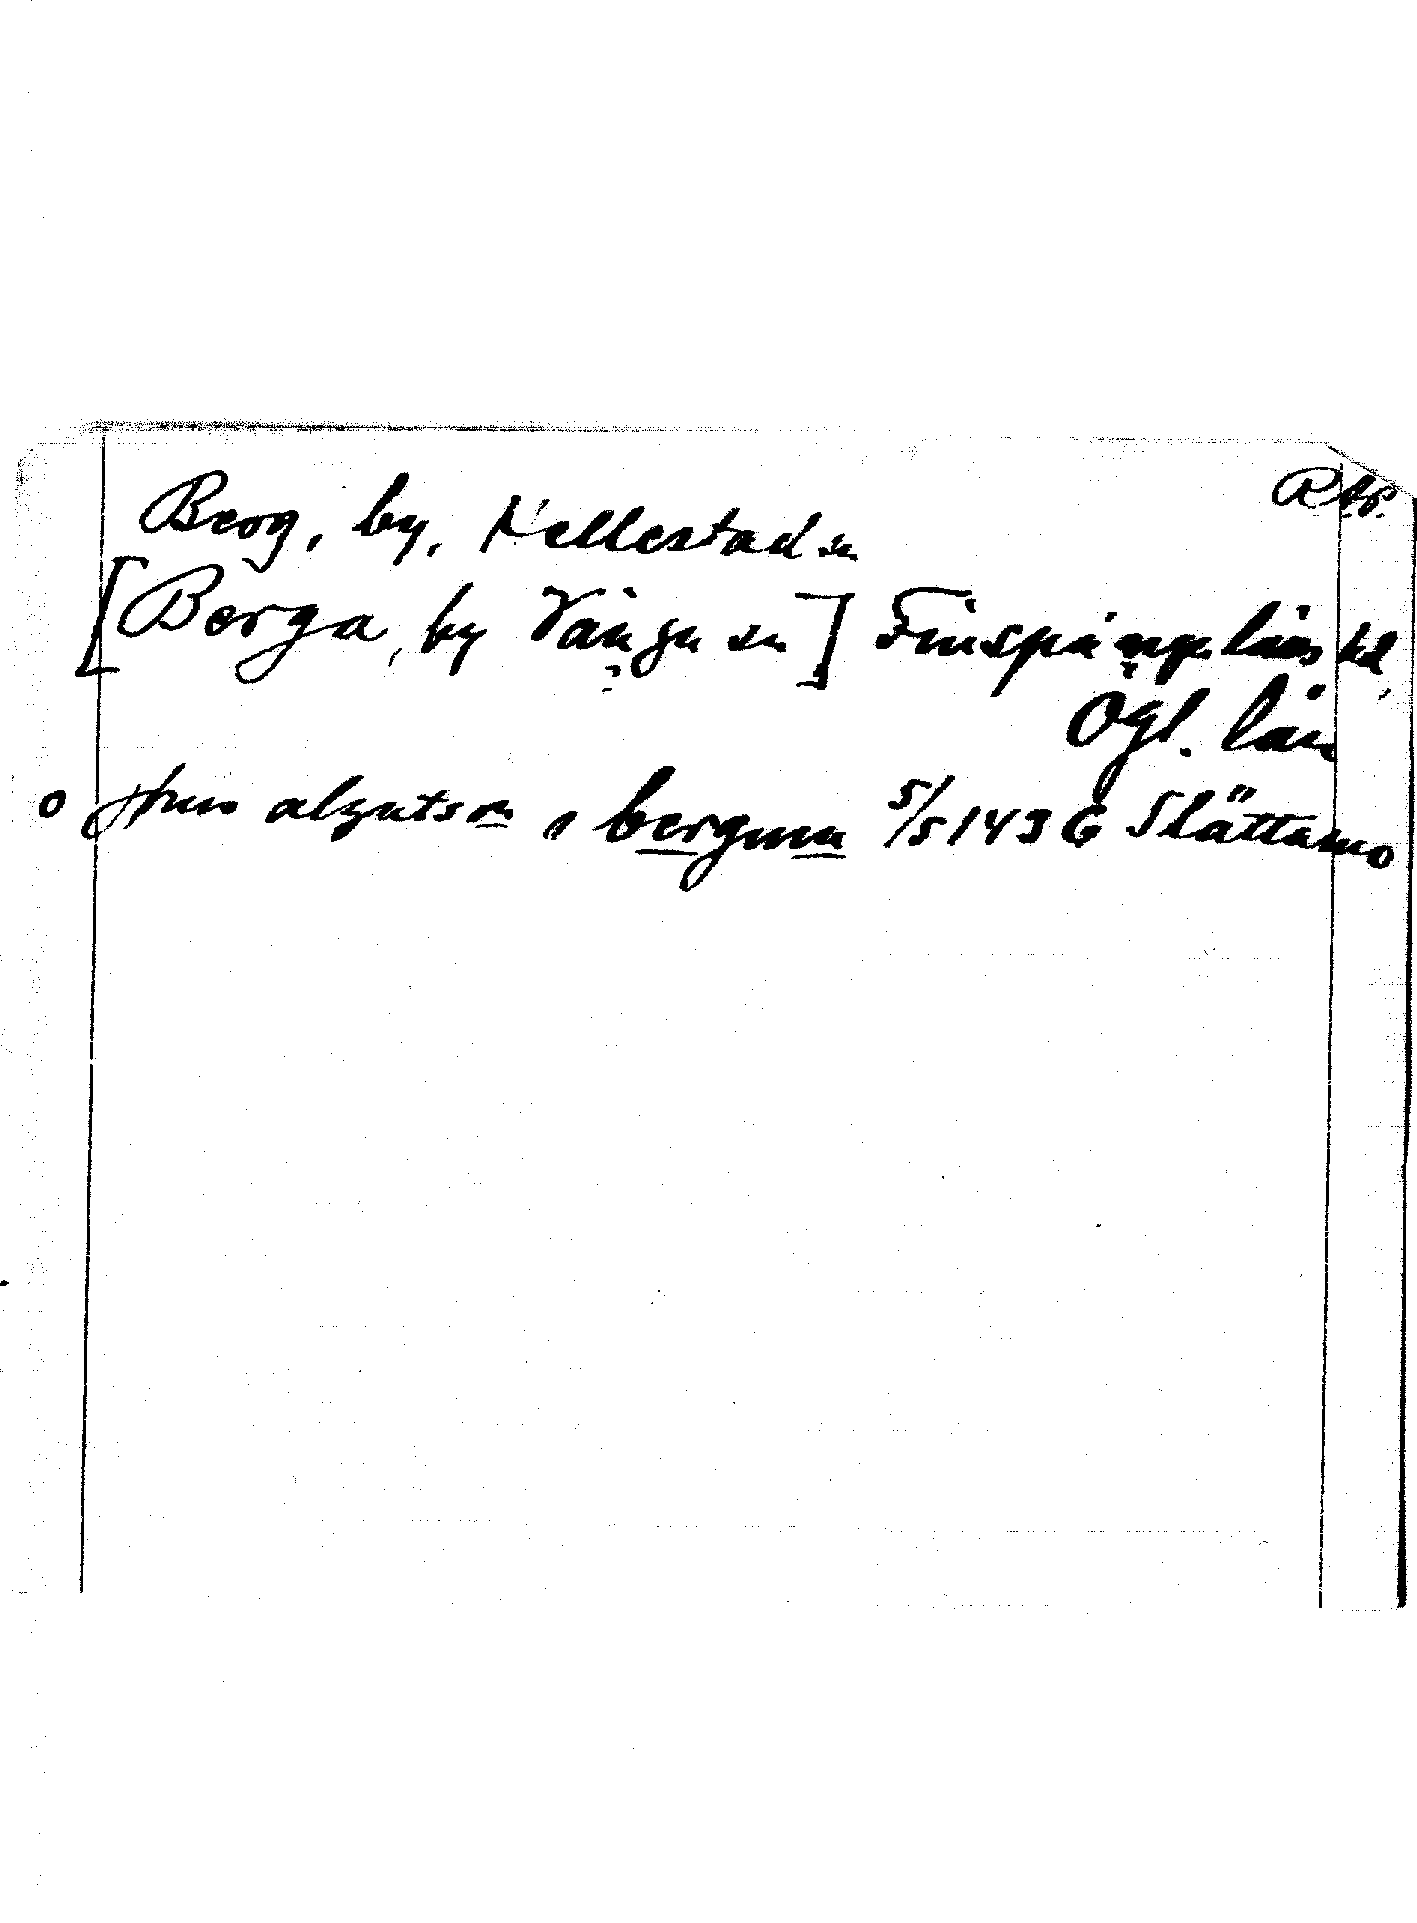 RAp.
Berg, by, Hellestad sn
[Berga, by Vånga sn] Finspånga läns hd,
Ögl. län
o jhus algutson i bergum 5/5 1436 Slättamo